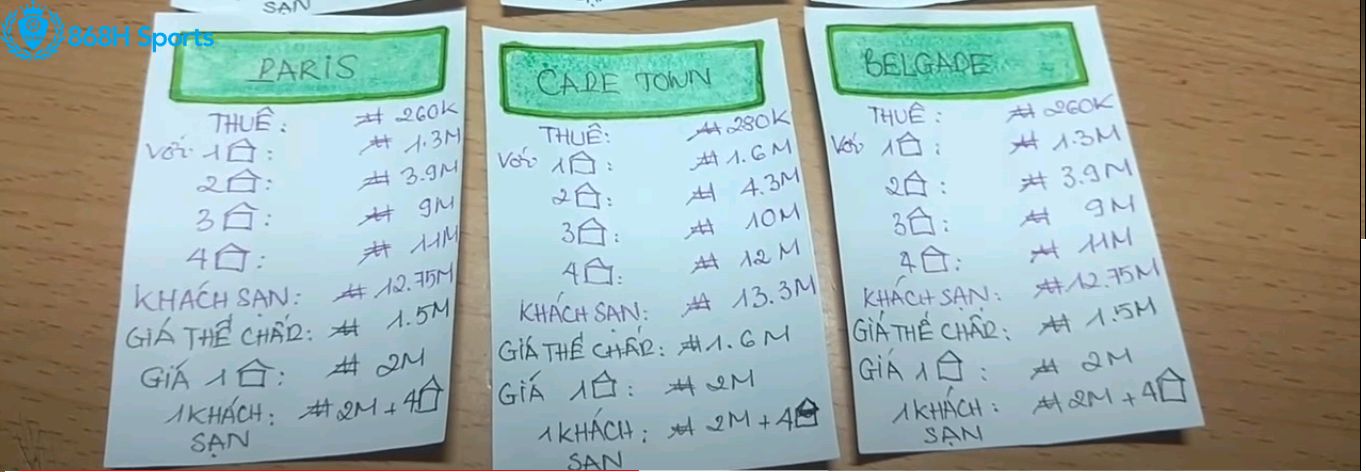 868H Sports
SẠN
PARIS
THUÊ: ₩ 260K
VỚI 1⌂: ₩ 1.3M
2⌂: ₩ 3.9M
3⌂: ₩ 9M
4⌂: ₩ 11M
KHÁCH SẠN: ₩ 12.75M
GIÁ THẾ CHẤP: ₩ 1.5M
GIÁ 1⌂: ₩ 2M
1 KHÁCH: ₩ 2M + 4⌂
SẠN
CAPE TOWN
THUÊ: ₩ 280K
VỚI 1⌂: ₩ 1.6M
2⌂: ₩ 4.3M
3⌂: ₩ 10M
4⌂: ₩ 12M
KHÁCH SẠN: ₩ 13.3M
GIÁ THẾ CHẤP: ₩ 1.6M
GIÁ 1⌂: ₩ 2M
1 KHÁCH: ₩ 2M + 4⌂
SẠN
BELGADE
THUÊ: ₩ 260K
VỚI 1⌂: ₩ 1.3M
2⌂: ₩ 3.9M
3⌂: ₩ 9M
4⌂: ₩ 11M
KHÁCH SẠN: ₩ 12.75M
GIÁ THẾ CHẤP: ₩ 1.5M
GIÁ 1⌂: ₩ 2M
1 KHÁCH: ₩ 2M + 4⌂
SẠN